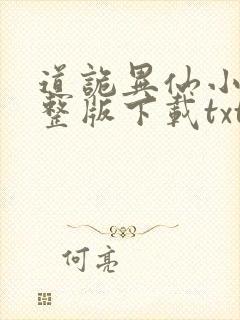 道詭異仙小
整版下載txt
何亮